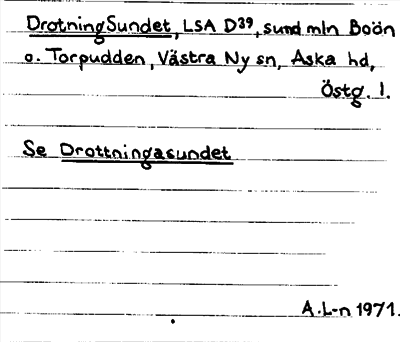 Drotning Sundet, LSA D39, sund mln Boön
o. Torpudden, Västra Ny sn, Aska hd,
Östg. l.
Se Drottningasundet
A.L-n 1971.